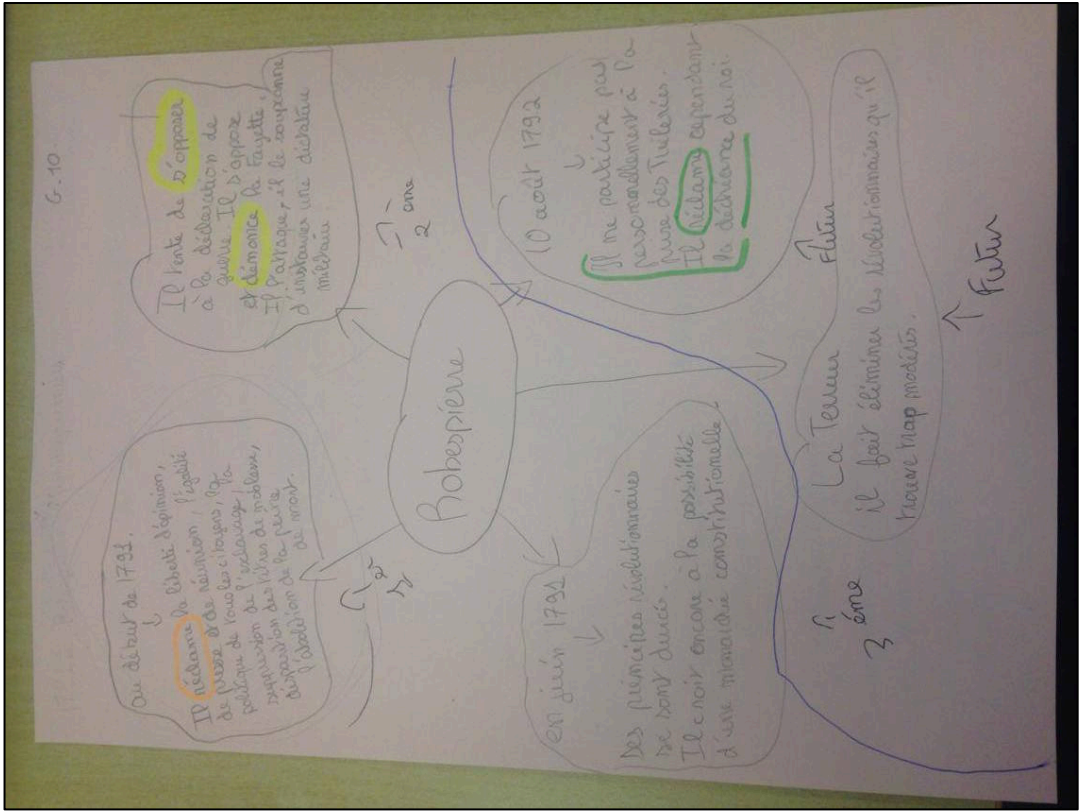 G.10
au début de 1791.
Il réclame la liberté d'opinion,
de presse et de réunion, l'égalité
politique de tous les citoyens, la
suppression de l'esclavage, la
disparition des titres de noblesse,
l'abolition de la peine
de mort.
Il tente de s'opposer
à la déclaration de
guerre. Il s'oppose
et dénonce la Fayette,
Il l'attaque, il le soupçonne
d'instaurer une dictature
militaire
1er
2ème
Robespierre
en juin 1791
Des principes révolutionnaires
se sont durcis.
Il croit encore à la possibilité
d'une monarchie constitutionnelle
10 août 1792
Il ne participe pas
personnellement à la
prise des Tuileries.
Il réclame cependant
la déchéance du roi.
3ème
La Terreur
Futur
il fait éliminer les révolutionnaires qu'il
trouve trop modérés.
Futur